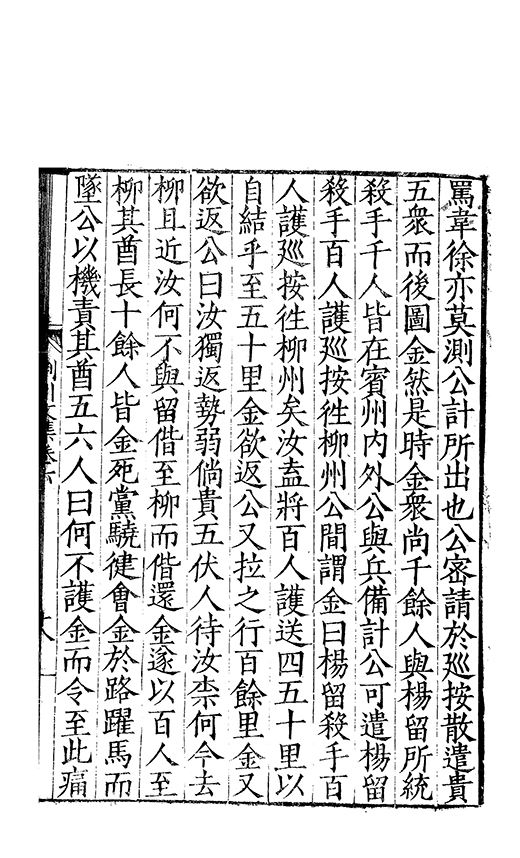 罵韋徐亦莫測公計所出也公密請於廵按散遣貴
五衆而後圖金然是時金衆尚千餘人與楊留所統
殺手千人皆在賓州内外公與兵備計公可遣楊留
殺手百人護廵按徃柳州公間謂金曰楊留殺手百
人護廵按徃柳州矣汝盍將百人護送四五十里以
自結乎至五十里金欲返公又拉之行百餘里金又
欲返公曰汝獨返勢弱倘貴五伏人待汝柰何今去
柳且近汝何不與留偕至柳而偕還金遂以百人至
柳其酋長十餘人皆金死黨驍徤會金於路躍馬而
墜公以機責其酋五六人曰何不護金而令至此痛
荆川文集卷六